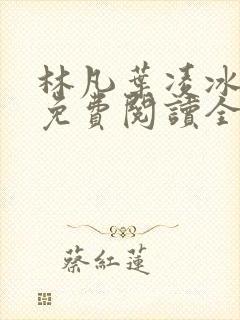 林凡葉凌冰
免費閱讀全
蔡紅蓮